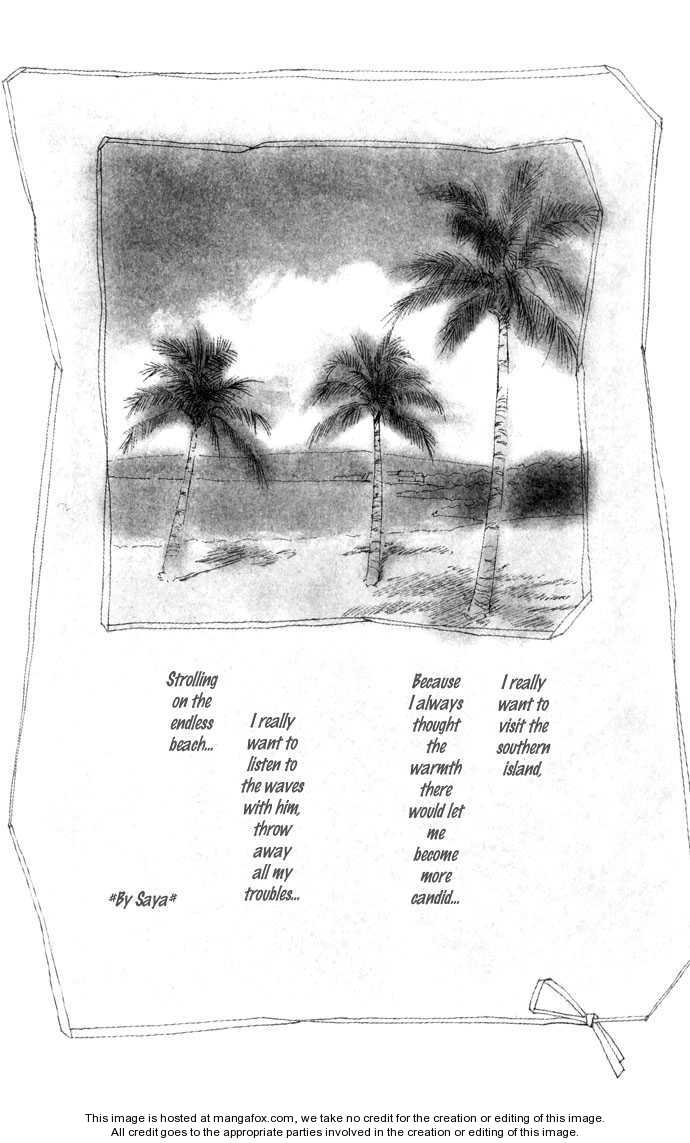 I really
want to
visit the
southern
island,
Because
I always
thought
the
warmth
there
would let
me
become
more
candid...
I really
want to
listen to
the waves
with him,
throw
away
all my
troubles...
Strolling
on the
endless
beach...
*By Saya*
This image is hosted at mangafox.com, we take no credit for the creation or editing of this image.
All credit goes to the appropriate parties involved in the creation or editing of this image.